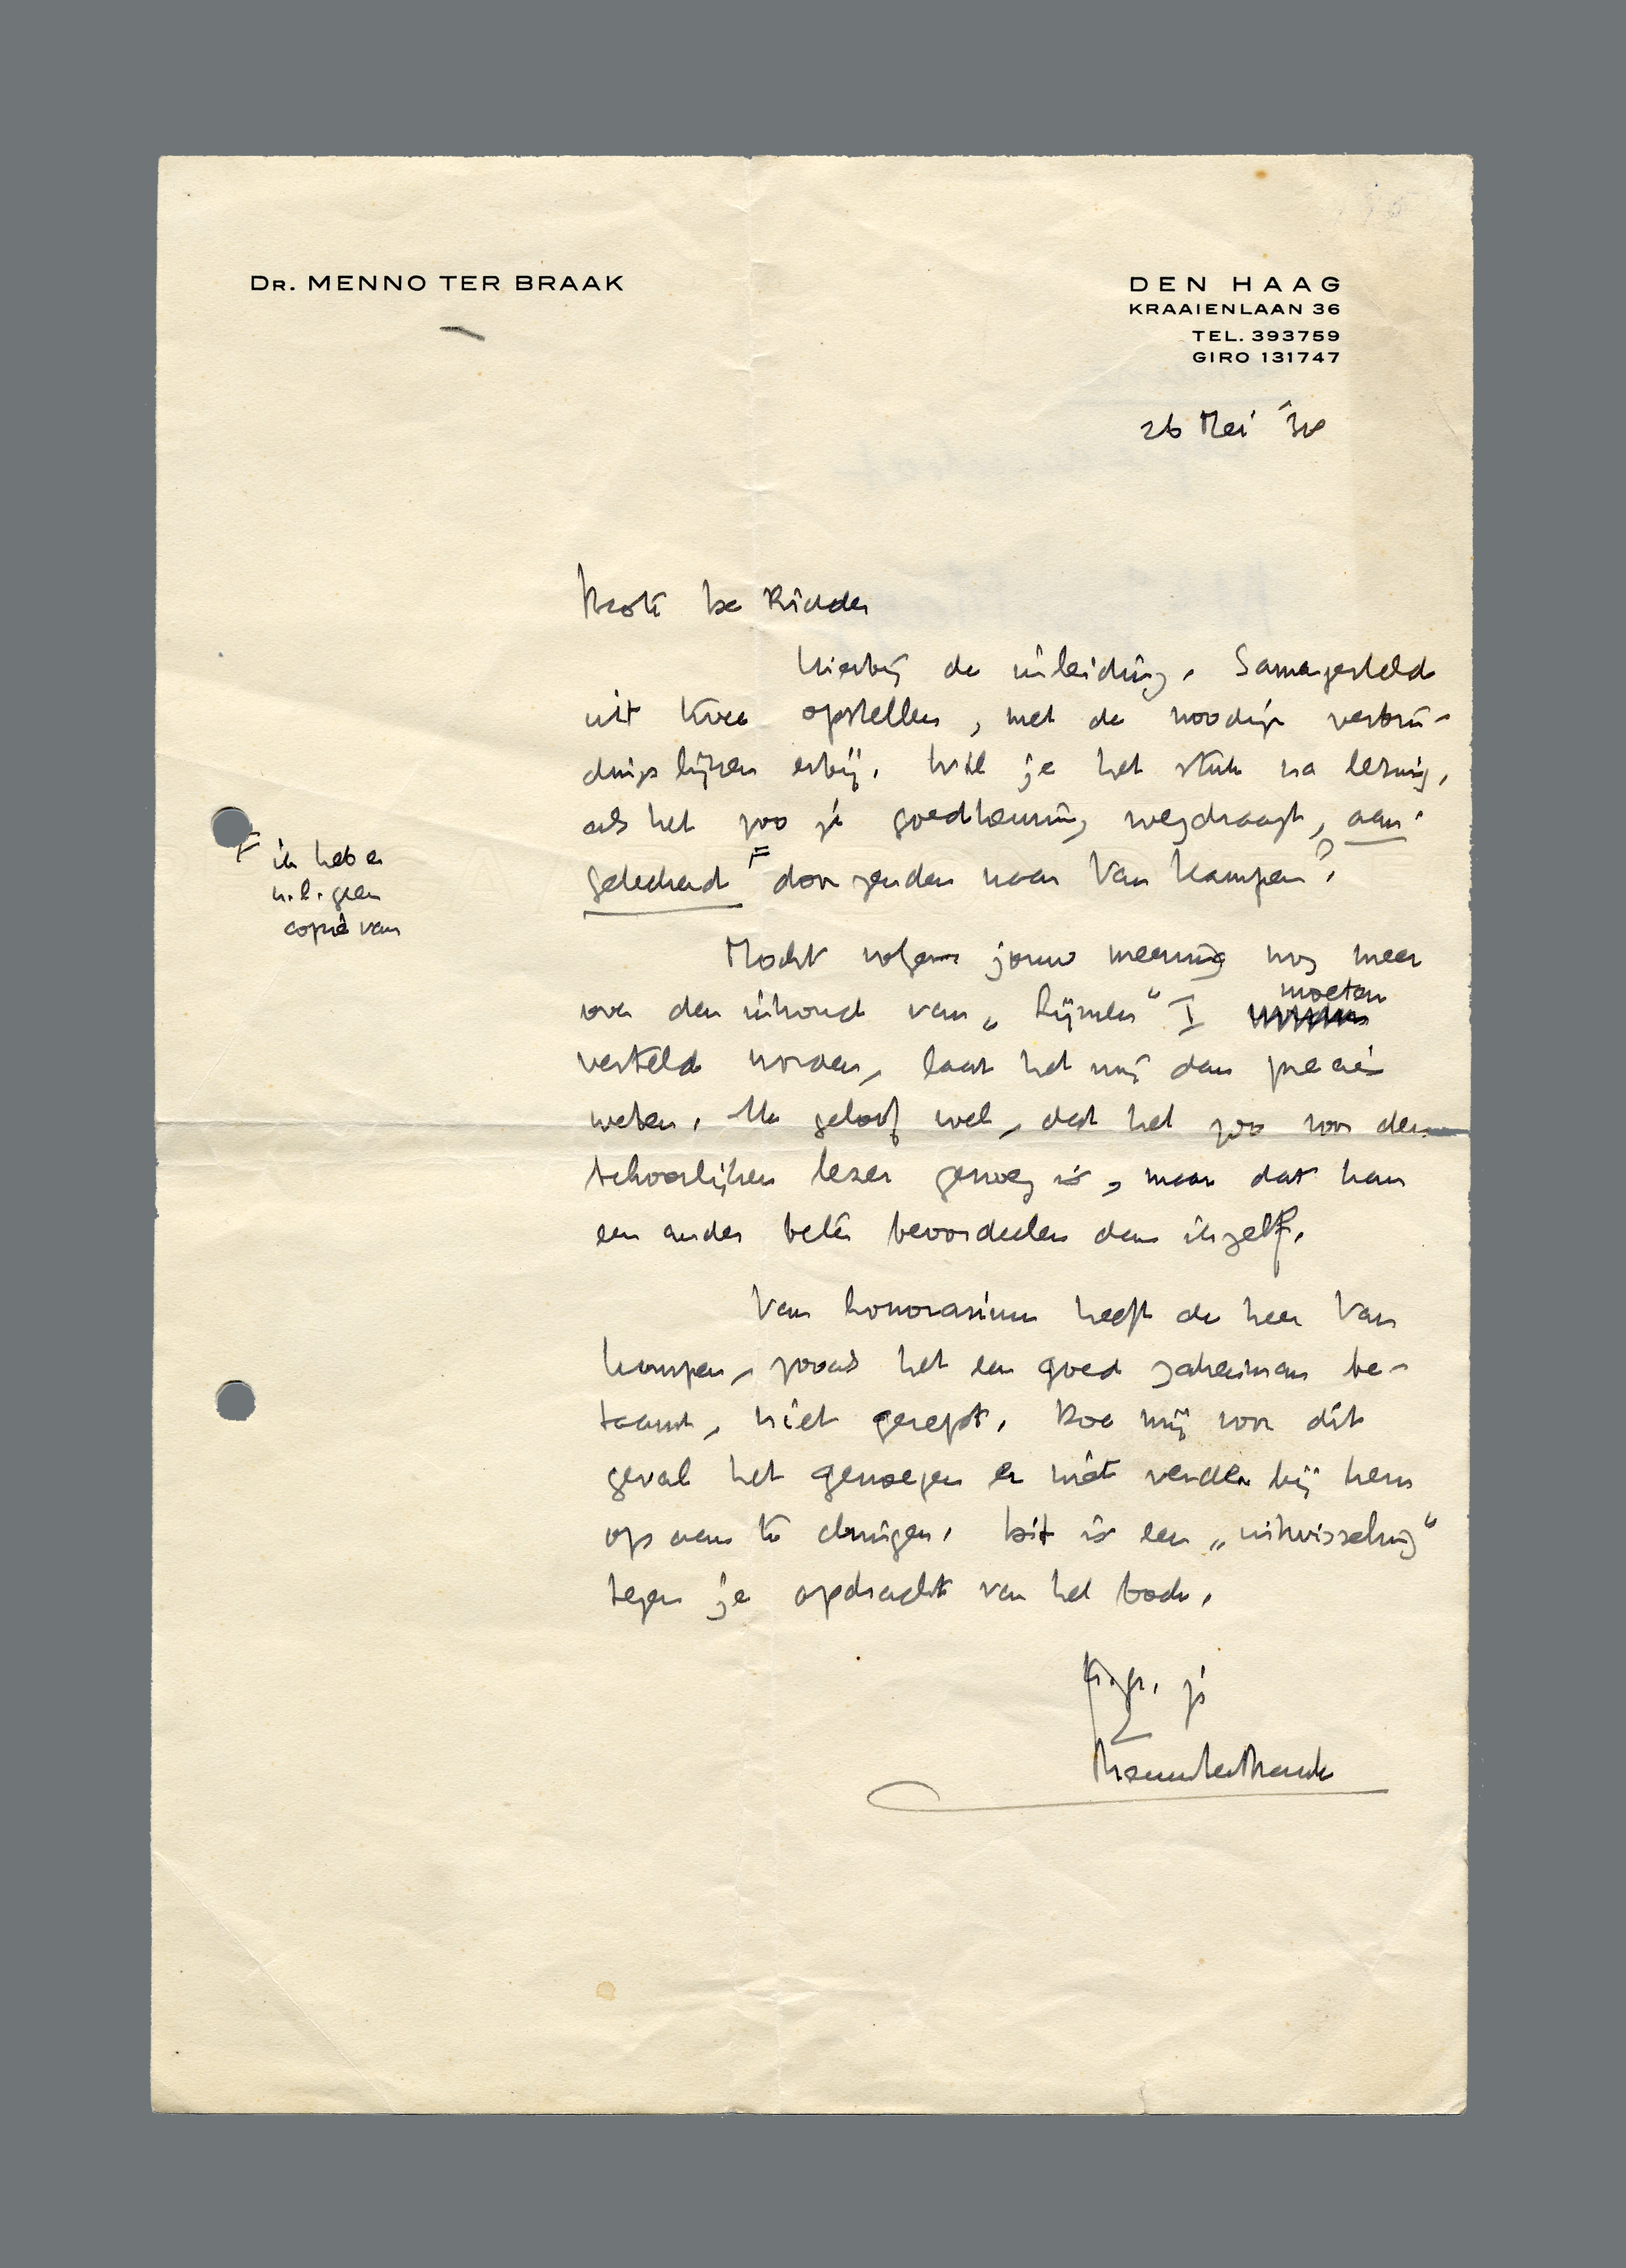 Dr. MENNO TER BRAAK
DEN HAAG
KRAAIENLAAN 36
TEL. 393759
GIRO 131747
26 Mei '38
Beste De Ridder
Hierbij de inleiding. Samengesteld
uit twee opstellen, met de noodige verbin-
dingslijnen erbij. Wil je het stuk na lezing,
als het zoo je goedkeuring wegdraagt, aan-
geteekend F doorzenden naar Van Kampen?
F ik heb er
n.l. geen
copie van
Mocht volgens jouw meening nog meer
over den inhoud van „Lijmen" I moeten
verteld worden, laat het mij dan precies
weten. Ik geloof wel, dat het zoo voor den
behoorlijken lezer genoeg is, maar dat kan
een ander beter beoordeelen dan ikzelf.
Van honorarium heeft de heer Van
Kampen, zooals het een goed zakenman be-
taamt, niet gerept. Doe mij voor dit
geval het genoegen er niet verder bij hem
op aan te dringen. Dit is een „uitwisseling"
tegen je opdracht van het boek.
H.gr. je
Menno ter Braak